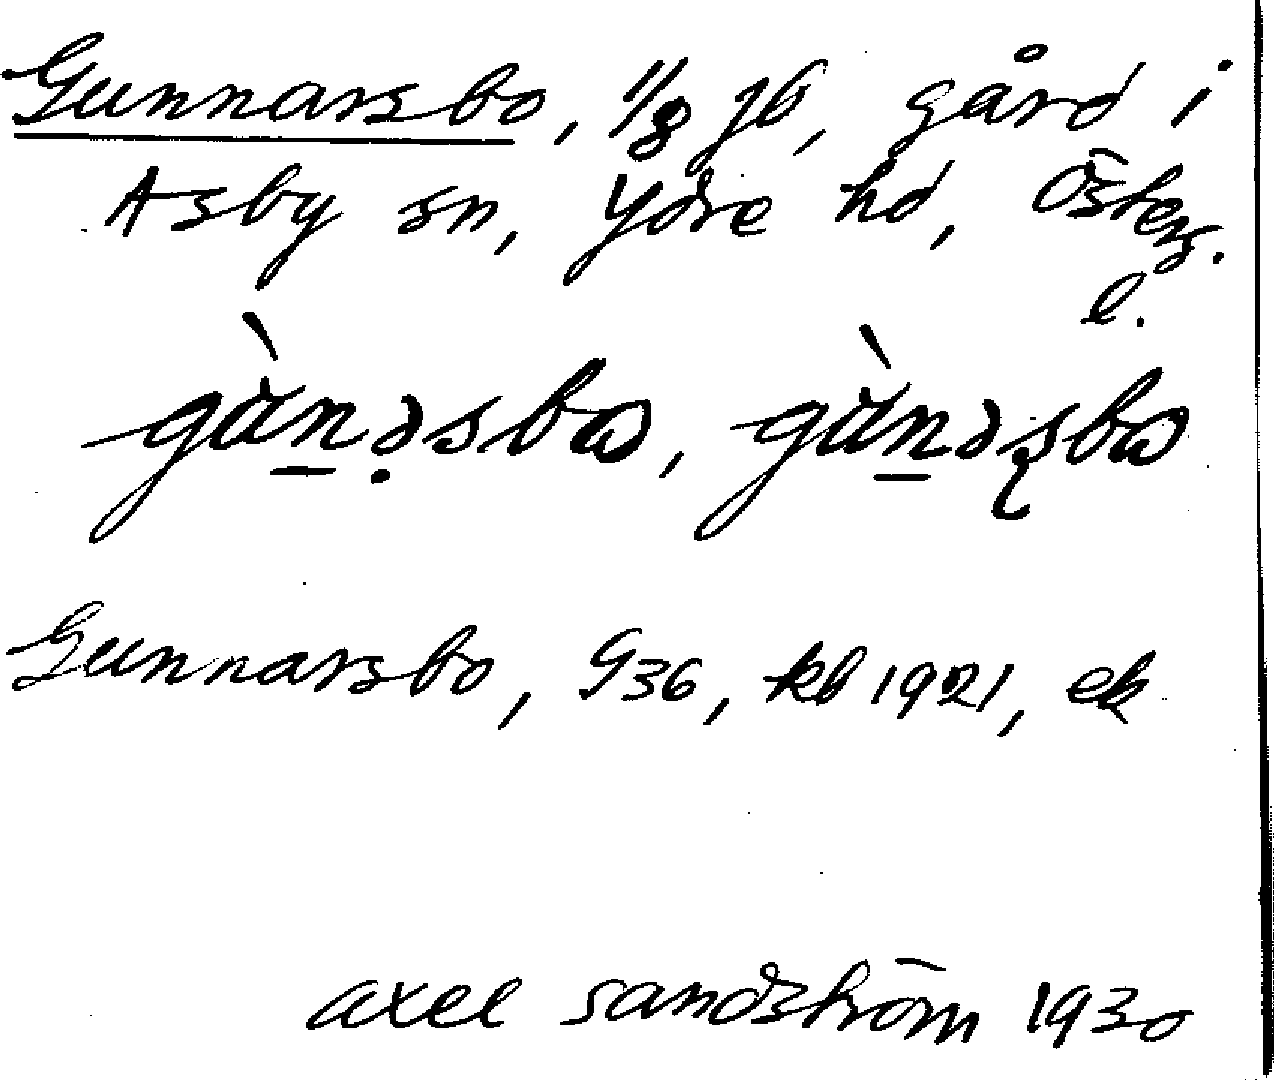 Gunnarsbo, 1/8 jb, gård i
Asby sn, Ydre hd, Österg.
l.
gàn̲ə̣sbɷ, gàn̲əʂbɷ
Gunnarsbo, G36, kb 1921, ek
axel sandström 1930